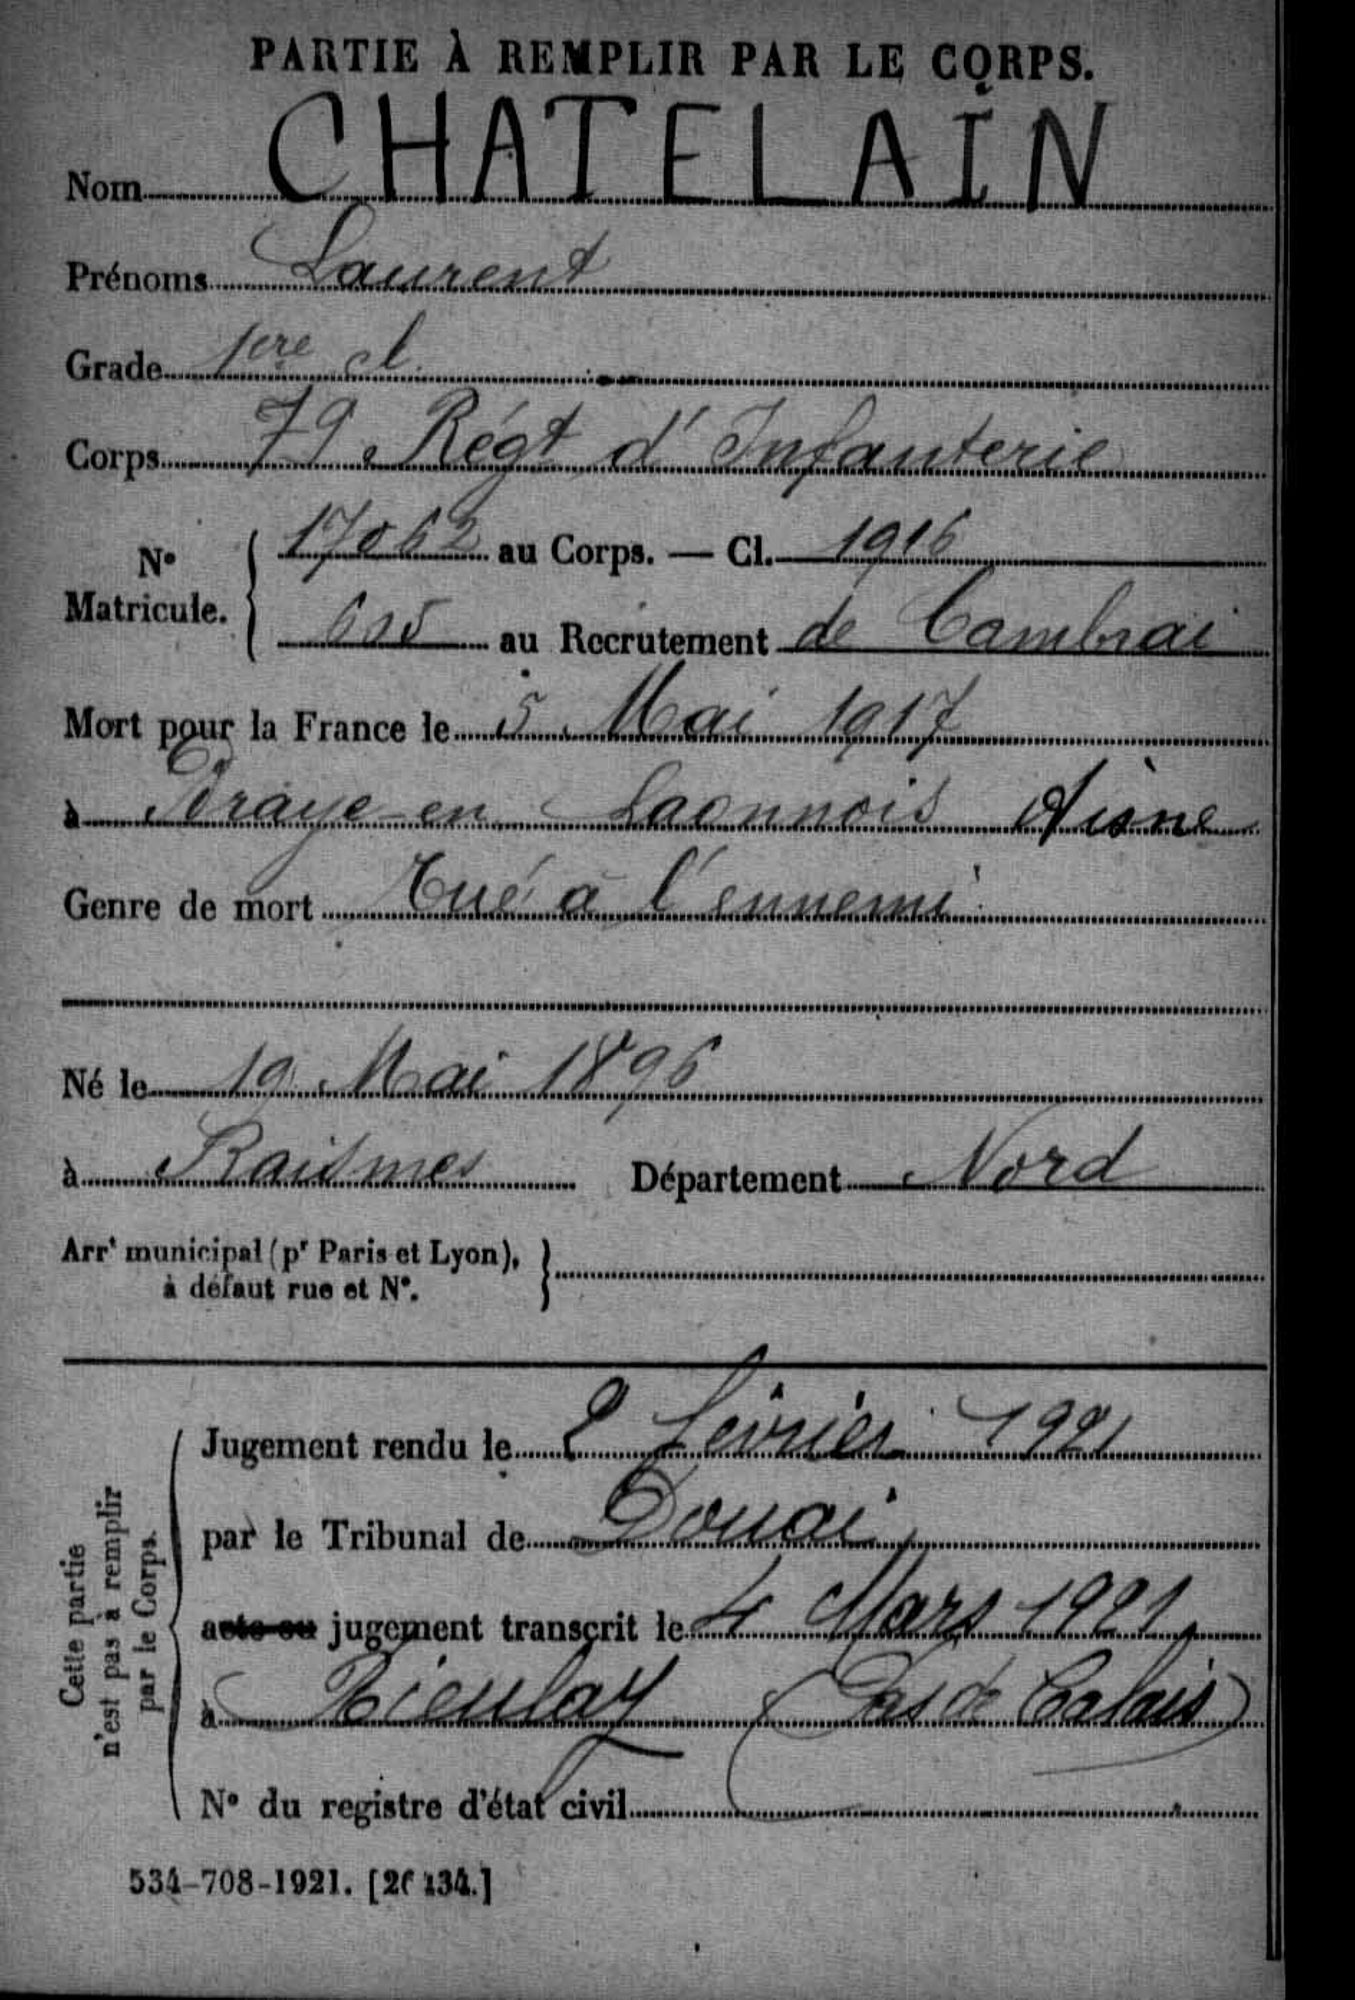 PARTIE À REMPLIR PAR LE CORPS.
Nom CHATELAIN
Prénoms Laurent
Grade 1ere cl.
Corps 79e Régt d'Infanterie
No Matricule. 17062 au Corps. — Cl. 1916
605 au Recrutement de Cambrai
Mort pour la France le 5 Mai 1917
à Braye-en Laonnois Aisne
Genre de mort Tué à l'ennemi
Né le 19 Mai 1896
à Raismes Département Nord
Arrt municipal (pr Paris et Lyon),
à défaut rue et No.
Cette partie
n'est pas à remplir
par le Corps.
Jugement rendu le 2 février 1921
par le Tribunal de Douai
acte ou jugement transcrit le 4 Mars 1921
à Rieulay (Pas de Calais)
No du registre d'état civil
534-708-1921. [26134.]